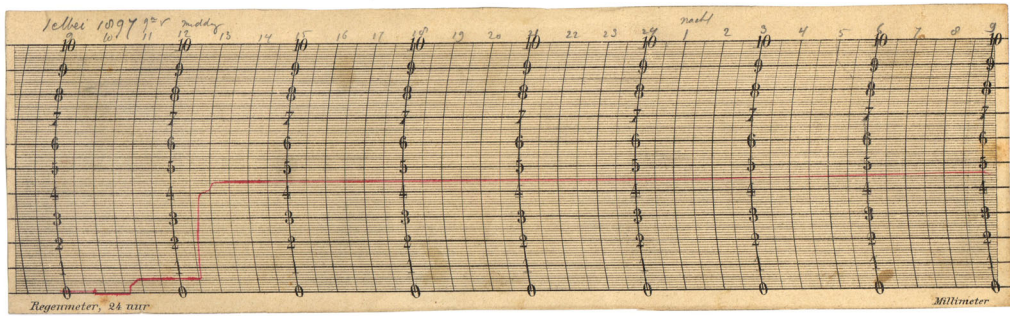 1897
9 10 11 12 13 14 15 16 17 18 19 20 21 22 23 24 1 2 3 4 5 6 7 8 9
10 10 10 10 10 10 10 10 10
9 9 9 9 9 9 9 9 9
8 8 8 8 8 8 8 8 8
7 7 7 7 7 7 7 7 7
6 6 6 6 6 6 6 6 6
5 5 5 5 5 5 5 5 5
4 4 4 4 4 4 4 4 4
3 3 3 3 3 3 3 3 3
2 2 2 2 2 2 2 2 2
0 0 0 0 0 0 0 0 0
Regenmeter, 24 uur Millimeter